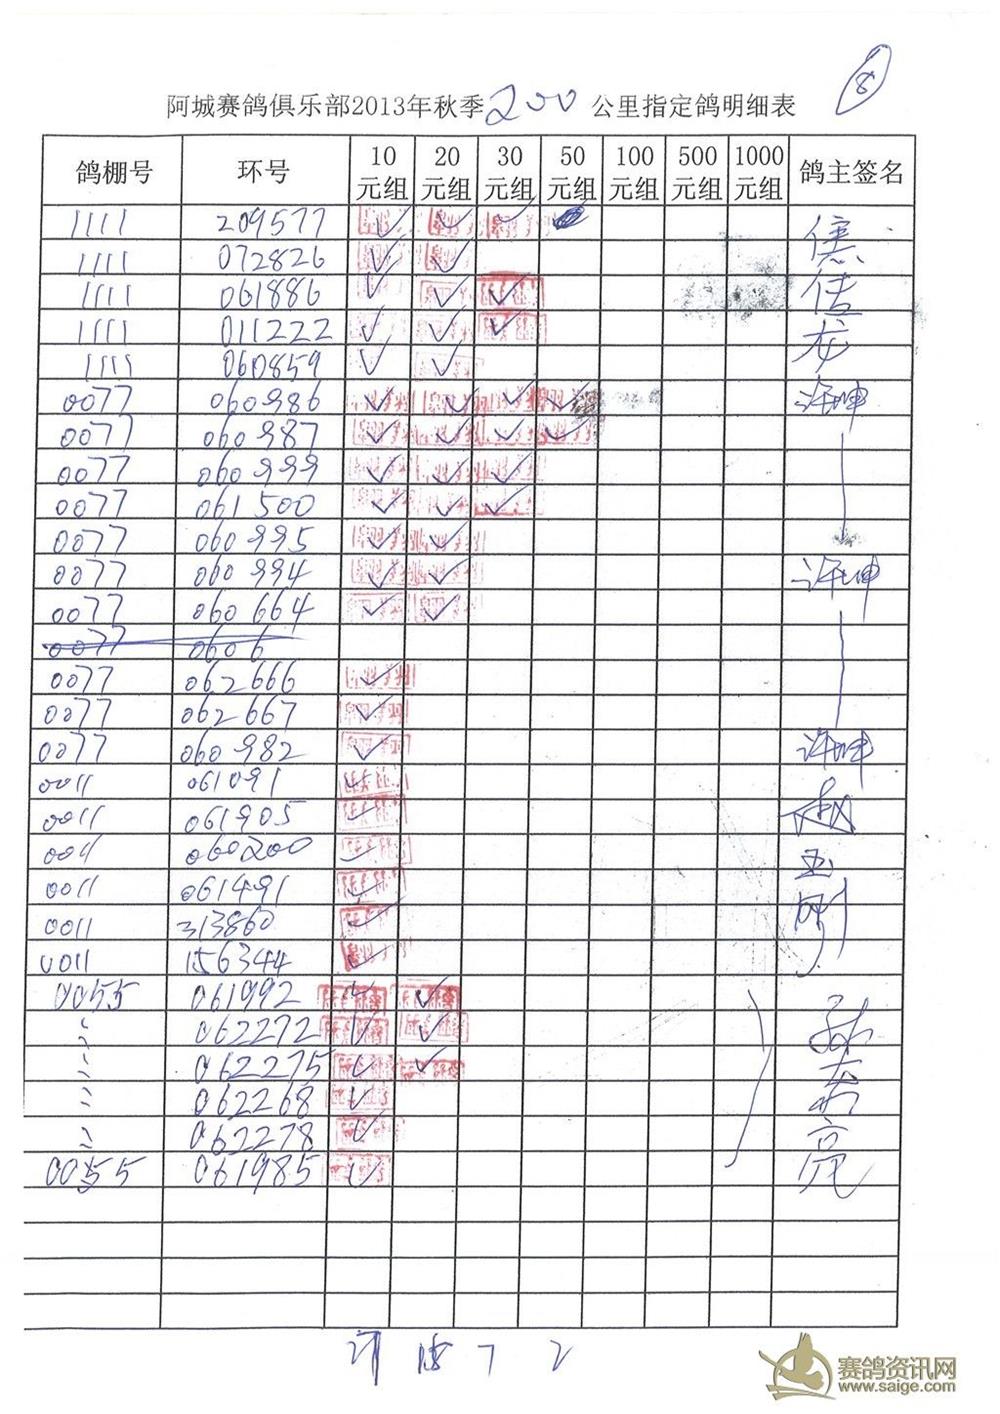 8
阿城赛鸽俱乐部2013年秋季200公里指定鸽明细表
鸽棚号 环号 10元组 20元组 30元组 50元组 100元组 500元组 1000元组 鸽主签名
1111 209577 ✓ ✓ ✓
1111 072826 ✓ ✓
1111 061886 ✓ ✓ ✓
1111 011222 ✓ ✓ ✓
1111 060859 ✓ ✓ 龙
0077 060986 ✓ ✓ ✓ ✓ 许坤
0077 060987 ✓ ✓ ✓ ✓
0077 060999 ✓ ✓ ✓
0077 061500 ✓ ✓ ✓
0077 060995 ✓ ✓
0077 060994 ✓ ✓ 许坤
0077 060664 ✓ ✓
0077 0606
0077 062666 ✓
0077 062667 ✓
0077 060982 ✓ 许坤
0011 061091 ✓
0011 061905 ✓ 赵
0011 060200 ✓ 玉
0011 061491 ✓ 刚
0011 313860 ✓
0011 156344 ✓
0055 061992 ✓ ✓
062272 ✓ ✓
062275 ✓ ✓
062268 ✓
062278 ✓ 亮
0055 061985 ✓
18 7 2
赛鸽资讯网
www.saige.com